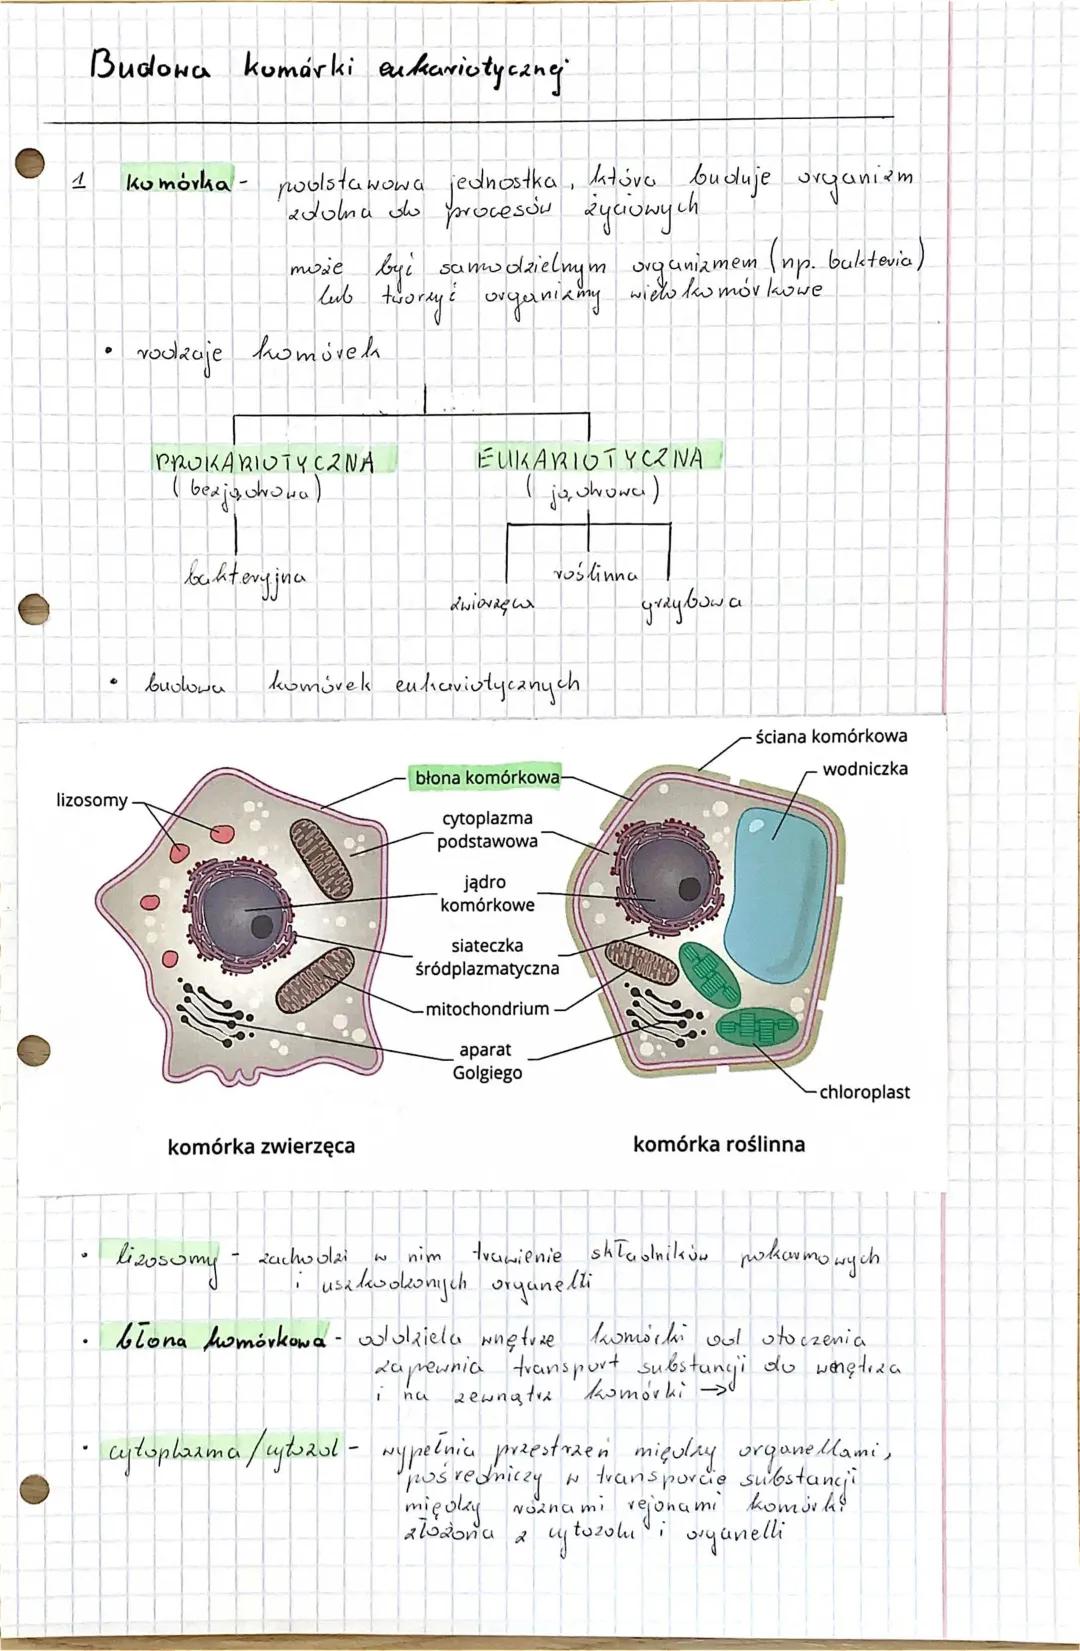 Budowa komórki eukariotycznej
1 komórka - podstawowa jednostka, która buduje organizm
zdolna do procesów życiowych
może być samodzielnym organizmem (np. bakteria)
lub tworzyć organizmy wielokomórkowe
• rodzaje komórek
PROKARIOTYCZNA EUKARIOTYCZNA
(bezjądrowa) (jądrowa)
bakteryjna roślinna
zwierzęca grzybowa
• budowa komórek eukariotycznych
ściana komórkowa
błona komórkowa wodniczka
lizosomy
cytoplazma
podstawowa
jądro
komórkowe
siateczka
śródplazmatyczna
mitochondrium
aparat
Golgiego
chloroplast
komórka zwierzęca komórka roślinna
• lizosomy - zachodzi w nim trawienie składników pokarmowych
i uszkodzonych organelli
• błona komórkowa - oddziela wnętrze komórki od otoczenia
zapewnia transport substancji do wnętrza
i na zewnątrz komórki →
• cytoplazma/cytozol - wypełnia przestrzeń między organellami,
pośredniczy w transporcie substancji
między różnami rejonami komórki
złożona z cytozolu i organelli